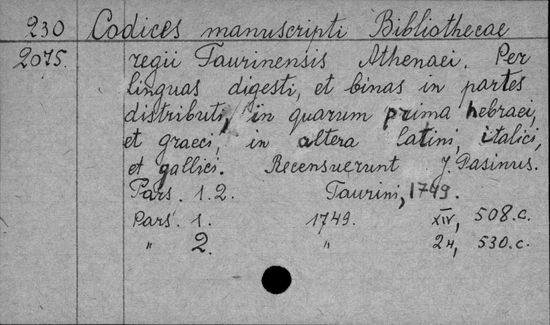 230 Codices manuscripti Bibliothecae
2075. regii Taurinensis Athenaei. Per
linguas digesti, et binas in partes
distributi, in quarum prima hebraei,
et graeci, in altera latini, italici,
et gallici. Recensuerunt J. Pasinus.
Pars. 1.2. Taurini, 1749.
Pars. 1. 1749. XIV, 508.c.
" 2. " 24, 530.c.